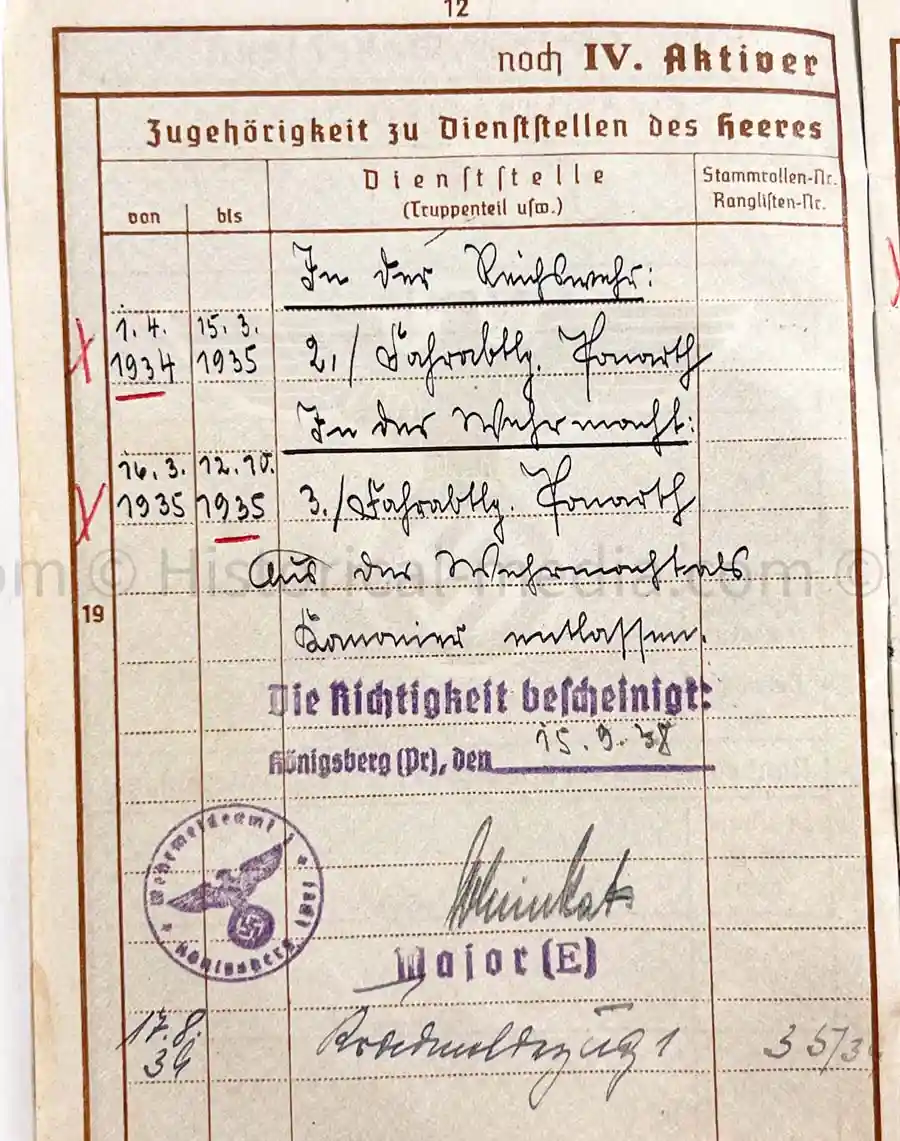 12
noch IV. Aktiver
Zugehörigkeit zu Dienststellen des Heeres
von
bis
Dienststelle
(Truppenteil usw.)
Stammrollen-Nr.
Ranglisten-Nr.
In der Reichswehr:
1.4. 15.3.
1934 1935 2./ Fahrabtlg. Ponarth
In der Wehrmacht:
16.3. 12.10.
1935 1935 3./Fahrabtlg. Ponarth
Aus der Wehrmacht als
19
Kanonier entlassen.
Die Richtigkeit bescheinigt:
Königsberg (Pr), den 15.9.38
Wehrmeldeamt
Königsberg (Pr)
Major (E)
17.8.
Kradmeldezug 1
© Historical-media.com ©